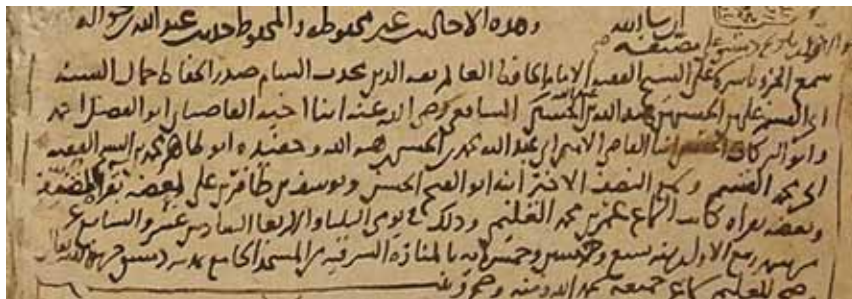 وهذه الاحاديث غير محفوظة والمحفوظ حديث عبد الله
ان شا الله
سمع الجزو باسره على الشيخ الفقيه الامام الحافظ العالم ثقه الدين محدث الشام صدر الحفاظ جمال السنه
ابى القسم على بن الحسن بن هبه الله بن عبد الله الشافعي رضى الله عنه ابنا اخيه القاضيان ابو الفضل احمد
وابو البركات الحسن ابنا القاضى الامين ابى عبد الله محمد بن الحسن بن هبه الله وحفيده ابو طاهر محمد بن الشيخ الفقيه
ابى محمد القسم وسمع النصف الاخير ابنه ابو الفتح الحسن ويوسف بن ظافر بن على بعضه بقراة المصنف
وبعضه بقراة كاتب السماع عمر بن محمد العليمى وذلك فى يومى الثلثا والاربعا السادس عشر والسابع عشر
من شهر ربيع الاول سنه سبع وخمسين وخمس مايه بالمناره الشرقيه من المسجد الجامع بمدينه دمشق حرسها الله تعالى
صح للعليمى سماع جميعه بحمد الله ومنه